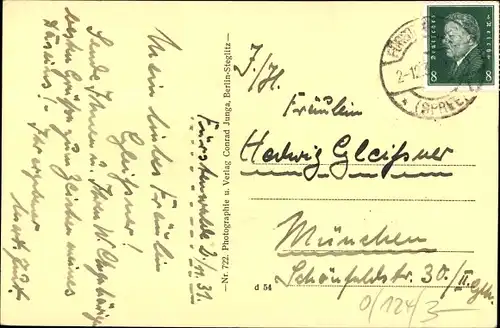 Fürstenwalde 2./11.31.
Mein liebes Fräulein
Gleißner!
Sende Ihnen u. Ihren W. Angehörigen
besten Grüße zum Zeichen meines
Daseins!
Nr. 722. Photographie u. Verlag Conrad Junga, Berlin-Steglitz
d 54
I./H.
Fräulein
Hedwig Gleißner
München
Schönfeldstr. 30./II. Glh.
0/124/3-
Deutsches Reich
8 8
2-12
(SPREE)